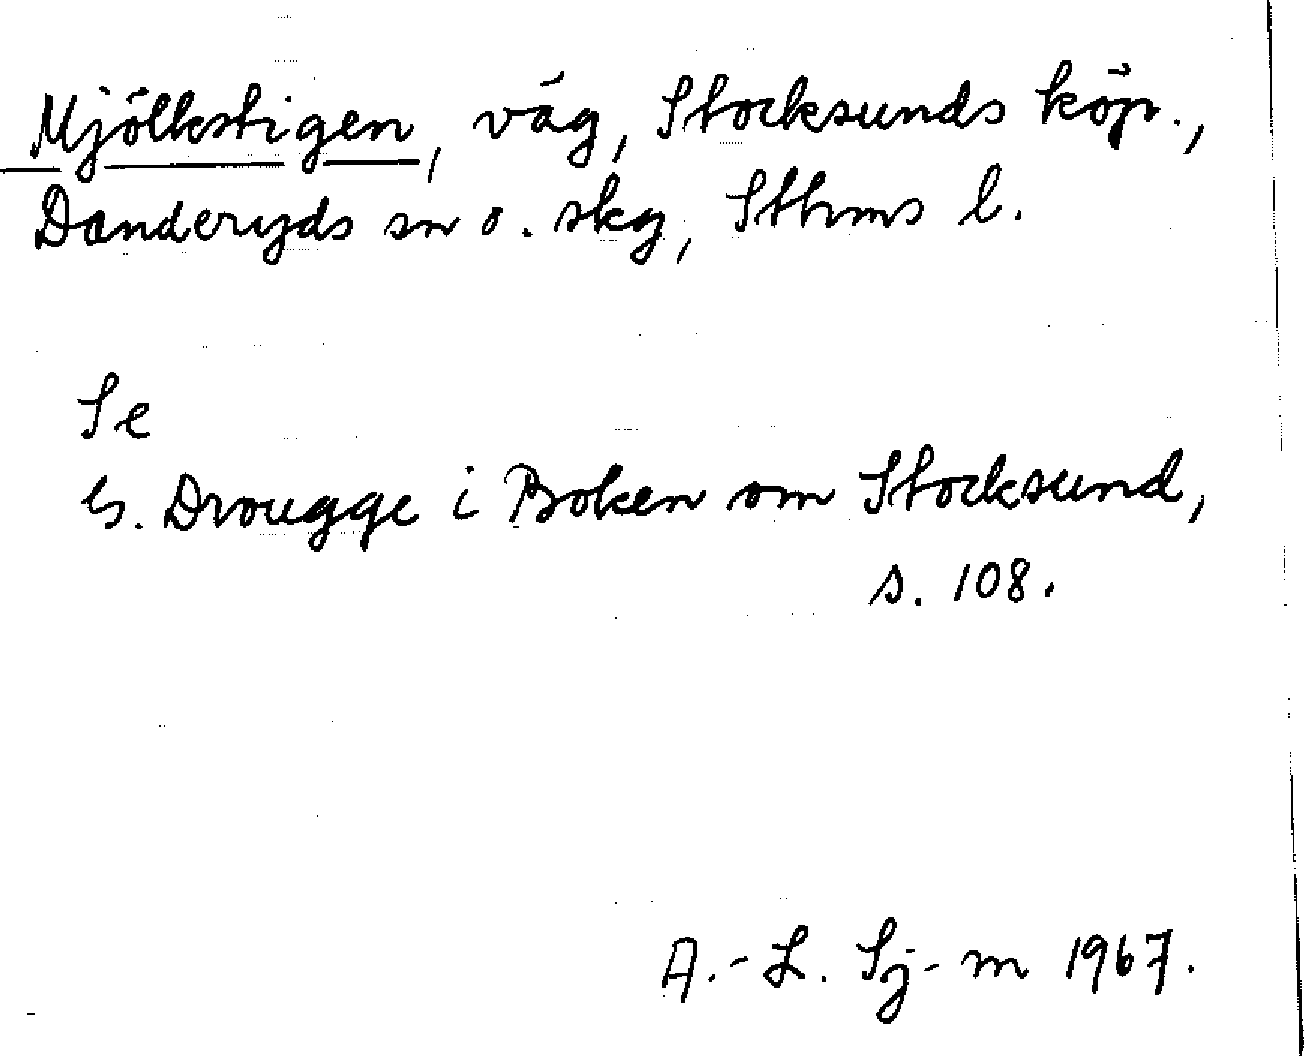 Mjölkstigen, väg, Stocksunds köp.,
Danderyds sn o. skg, Sthms l.
Se
G. Drougge i Boken om Stocksund,
s. 108.
A.-L. Sj-m 1967.